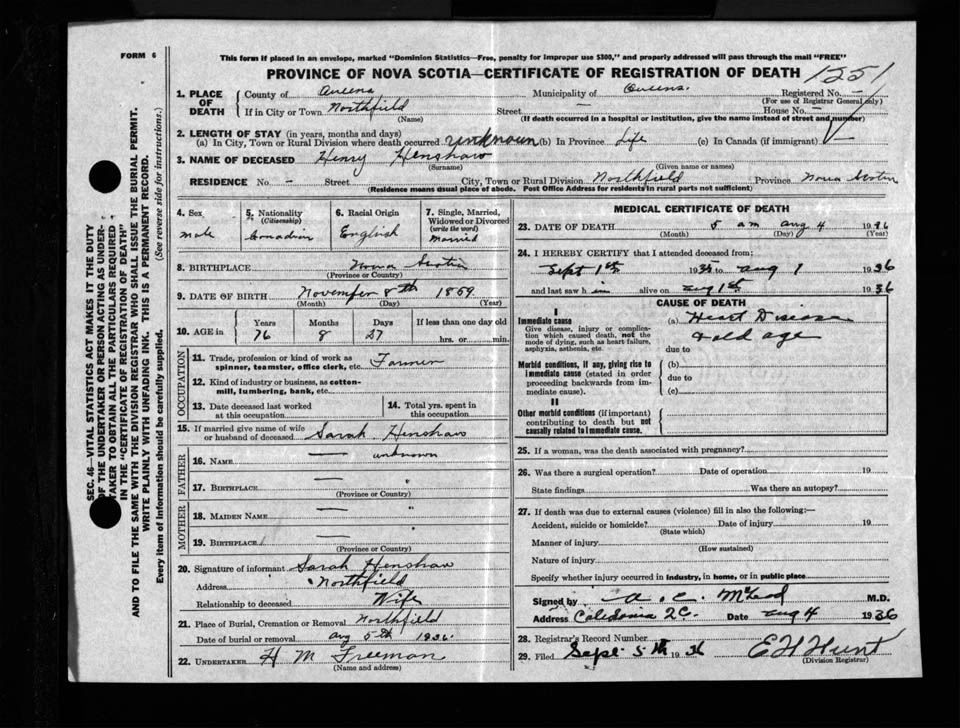 FORM 6
This form if placed in an envelope, marked "Dominion Statistics—Free, penalty for improper use $300," and properly addressed will pass through the mail "FREE"
PROVINCE OF NOVA SCOTIA—CERTIFICATE OF REGISTRATION OF DEATH 1251
1. PLACE OF DEATH
County of Queens Municipality of Queens. Registered No. —
(For use of Registrar General only)
If in City or Town Northfield Street — House No. —
(Name) (If death occurred in a hospital or institution, give the name instead of street and number)
2. LENGTH OF STAY (in years, months and days)
(a) In City, Town or Rural Division where death occurred unknown (b) In Province Life (c) In Canada (if immigrant)
3. NAME OF DECEASED Henry Henshaw
(Surname) (Given name or names)
RESIDENCE No. — Street City, Town or Rural Division Northfield Province Nova Scotia
(Residence means usual place of abode. Post Office Address for residents in rural parts not sufficient)
4. Sex male
5. Nationality (Citizenship) Canadian
6. Racial Origin English
7. Single, Married, Widowed or Divorced (write the word) married
8. BIRTHPLACE Nova Scotia
(Province or Country)
9. DATE OF BIRTH November 8th 1859
(Month) (Day) (Year)
10. AGE in Years Months Days If less than one day old
76 8 27 hrs. or min.
OCCUPATION
11. Trade, profession or kind of work as spinner, teamster, office clerk, etc. Farmer
12. Kind of industry or business, as cotton-mill, lumbering, bank, etc.
13. Date deceased last worked at this occupation
14. Total yrs. spent in this occupation
15. If married give name of wife or husband of deceased Sarah Henshaw
FATHER
16. NAME — unknown
17. BIRTHPLACE — "
(Province or Country)
MOTHER
18. MAIDEN NAME — "
19. BIRTHPLACE — "
(Province or Country)
20. Signature of informant Sarah Henshaw
Address Northfield
Relationship to deceased Wife
21. Place of Burial, Cremation or Removal Northfield
Date of burial or removal Aug 5th 1936.
22. UNDERTAKER H M Freeman
(Name and address)
MEDICAL CERTIFICATE OF DEATH
23. DATE OF DEATH 5 am Aug 4 1936
(Month) (Day) (Year)
24. I HEREBY CERTIFY that I attended deceased from:
Sept 1st 1935 to Aug 1 1936
and last saw him alive on Aug 1st 1936
CAUSE OF DEATH
I
Immediate cause
Give disease, injury or complication which caused death, not the mode of dying, such as heart failure, asphyxia, asthenia, etc.
(a) Heart Disease
& old age
due to
Morbid conditions, if any, giving rise to immediate cause (stated in order proceeding backwards from immediate cause).
(b)
due to
(c)
II
Other morbid conditions (if important) contributing to death but not causally related to immediate cause.
25. If a woman, was the death associated with pregnancy?
26. Was there a surgical operation? Date of operation 19
State findings Was there an autopsy?
27. If death was due to external causes (violence) fill in also the following:—
Accident, suicide or homicide? Date of injury 19
(State which)
Manner of injury
(How sustained)
Nature of injury
Specify whether injury occurred in industry, in home, or in public place
Signed by A. C. McLeod M.D.
Address Caledonia Q.C. Date Aug 4 1936
28. Registrar's Record Number
29. Filed Sept 5th 1936 E H Hunt
(Division Registrar)
SEC. 46—VITAL STATISTICS ACT MAKES IT THE DUTY
OF THE UNDERTAKER OR PERSON ACTING AS UNDER-
TAKER TO OBTAIN ALL THE PARTICULARS REQUIRED
IN THE "CERTIFICATE OF REGISTRATION OF DEATH"
AND TO FILE THE SAME WITH THE DIVISION REGISTRAR WHO SHALL ISSUE THE BURIAL PERMIT.
WRITE PLAINLY WITH UNFADING INK. THIS IS A PERMANENT RECORD.
Every item of information should be carefully supplied. (See reverse side for instructions.)